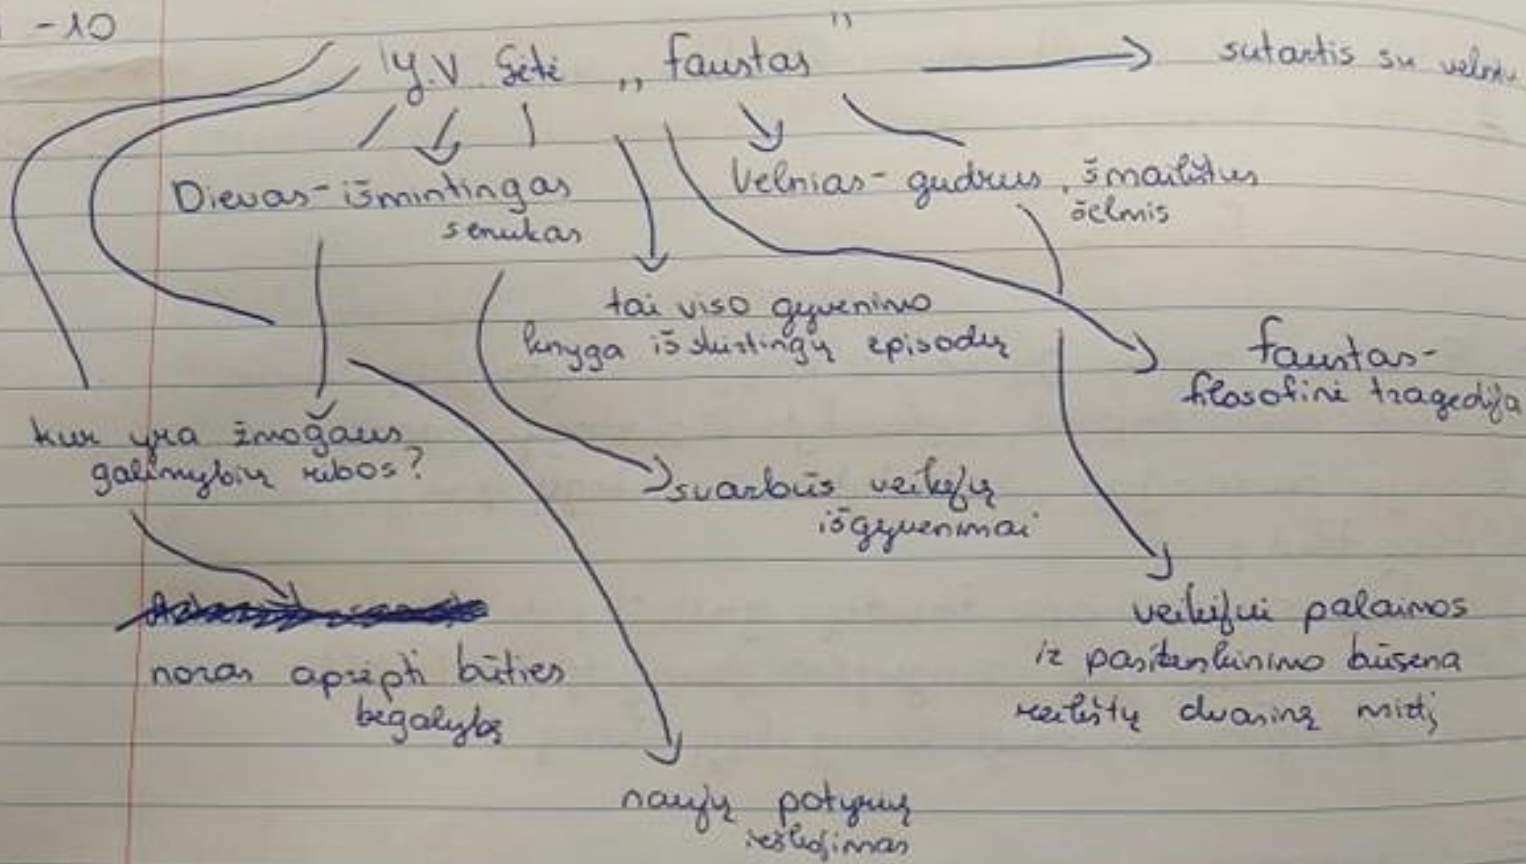 -10
Y.V. Gėtė „Faustas"
sutartis su velniu
Dievas - išmintingas
senukas
Velnias - gudrus, šmaikštus
šelmis
tai viso gyvenimo
knyga išskirtingų episodų
Faustas -
filosofinė tragedija
kur yra žmogaus
galimybių ribos?
svarbūs veikėjų
išgyvenimai
noras aprėpti būties
begalybę
veikėjui palaimos
ir pasitenkinimo būsena
reikštų dvasinę mirtį
naujų potyrių
ieškojimas